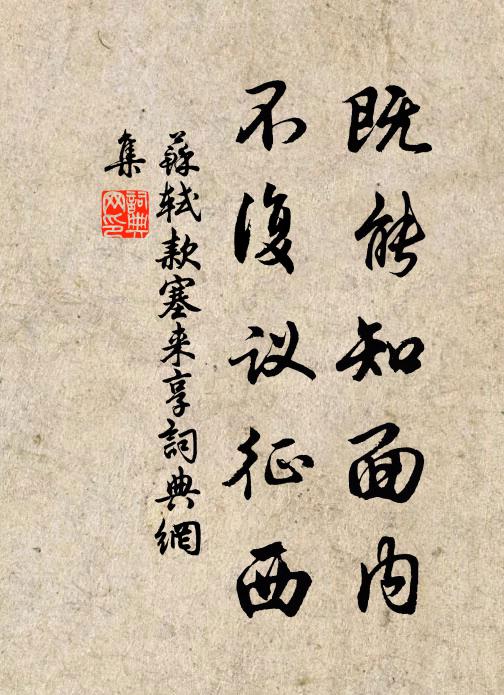 既能知面内
不復议征西
蘇轼款塞来享詞典網
集
詞典
网印